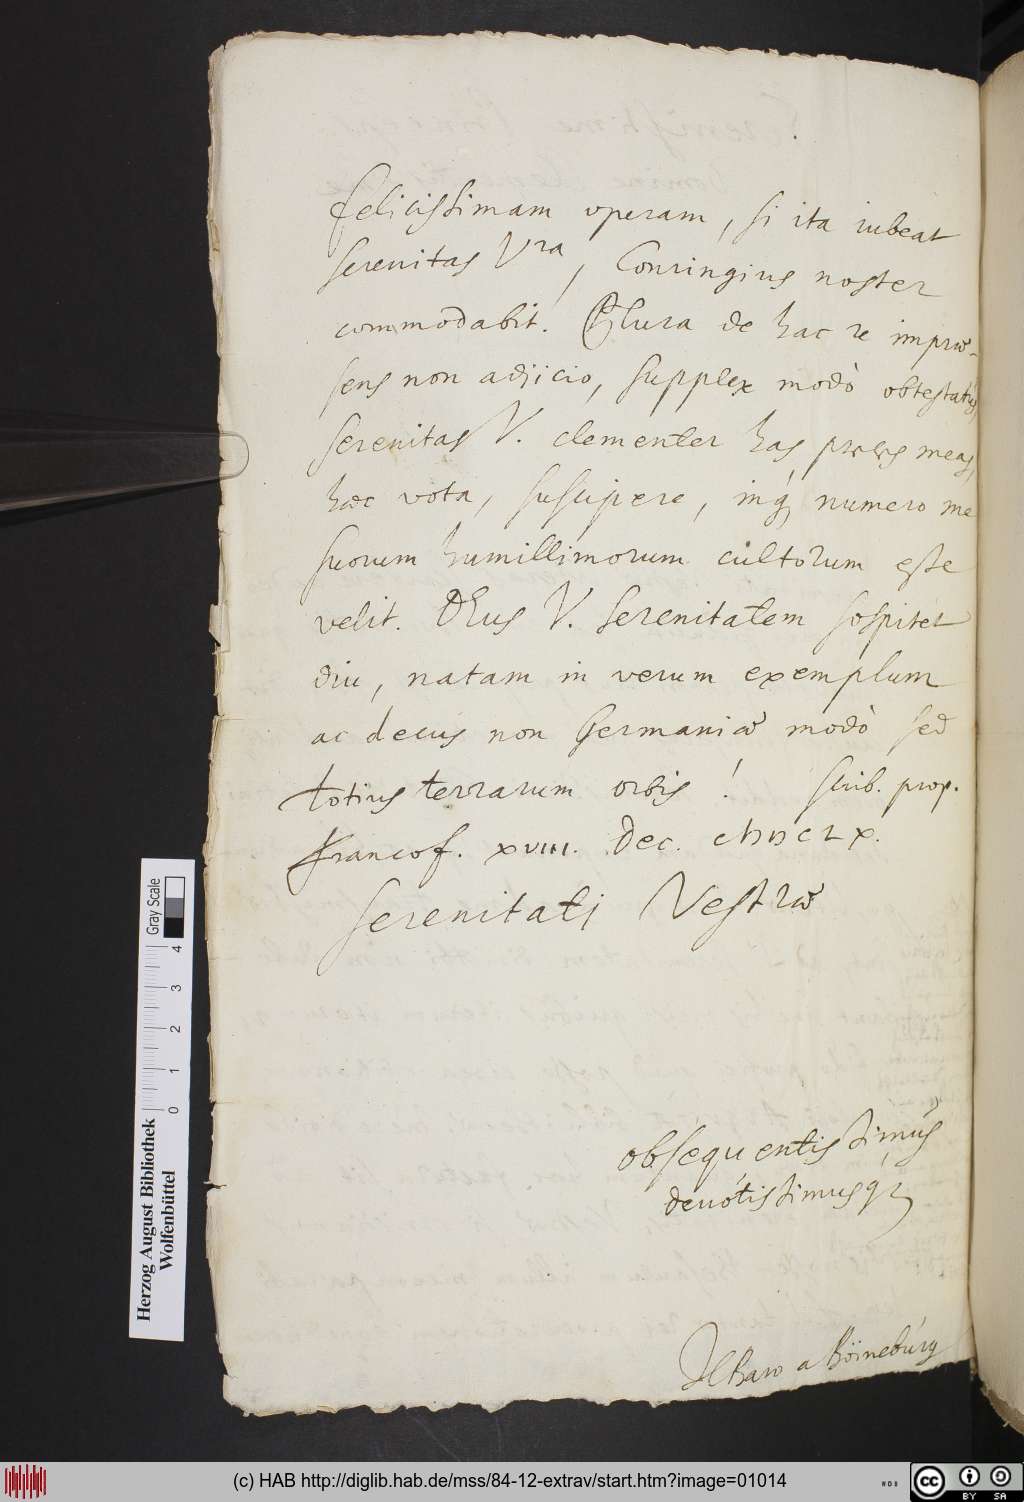 felicissimam operam, si ita iubeat
serenitas Vra, Conringius noster
commodabit. Plura de hac re impræ-
sens non adjicio, supplex modò obtestatus
serenitas V. clementer has preces meas,
hæc vota, suscipere, inq numero me
suorum humillimorum cultorum esse
velit. DEus V. serenitatem sospitet
diu, natam in verum exemplum
ac decus non Germaniæ modò sed
totius terrarum orbis! scrib. prop.
Francof. XVIII. Dec.
serenitati Vestræ
obsequentissimus
devotissimusq
a Böineburg
Herzog August Bibliothek
Wolfenbüttel
0 1 2 3 4
Gray Scale
(c) HAB http://diglib.hab.de/mss/84-12-extrav/start.htm?image=01014
WDB
CC BY SA